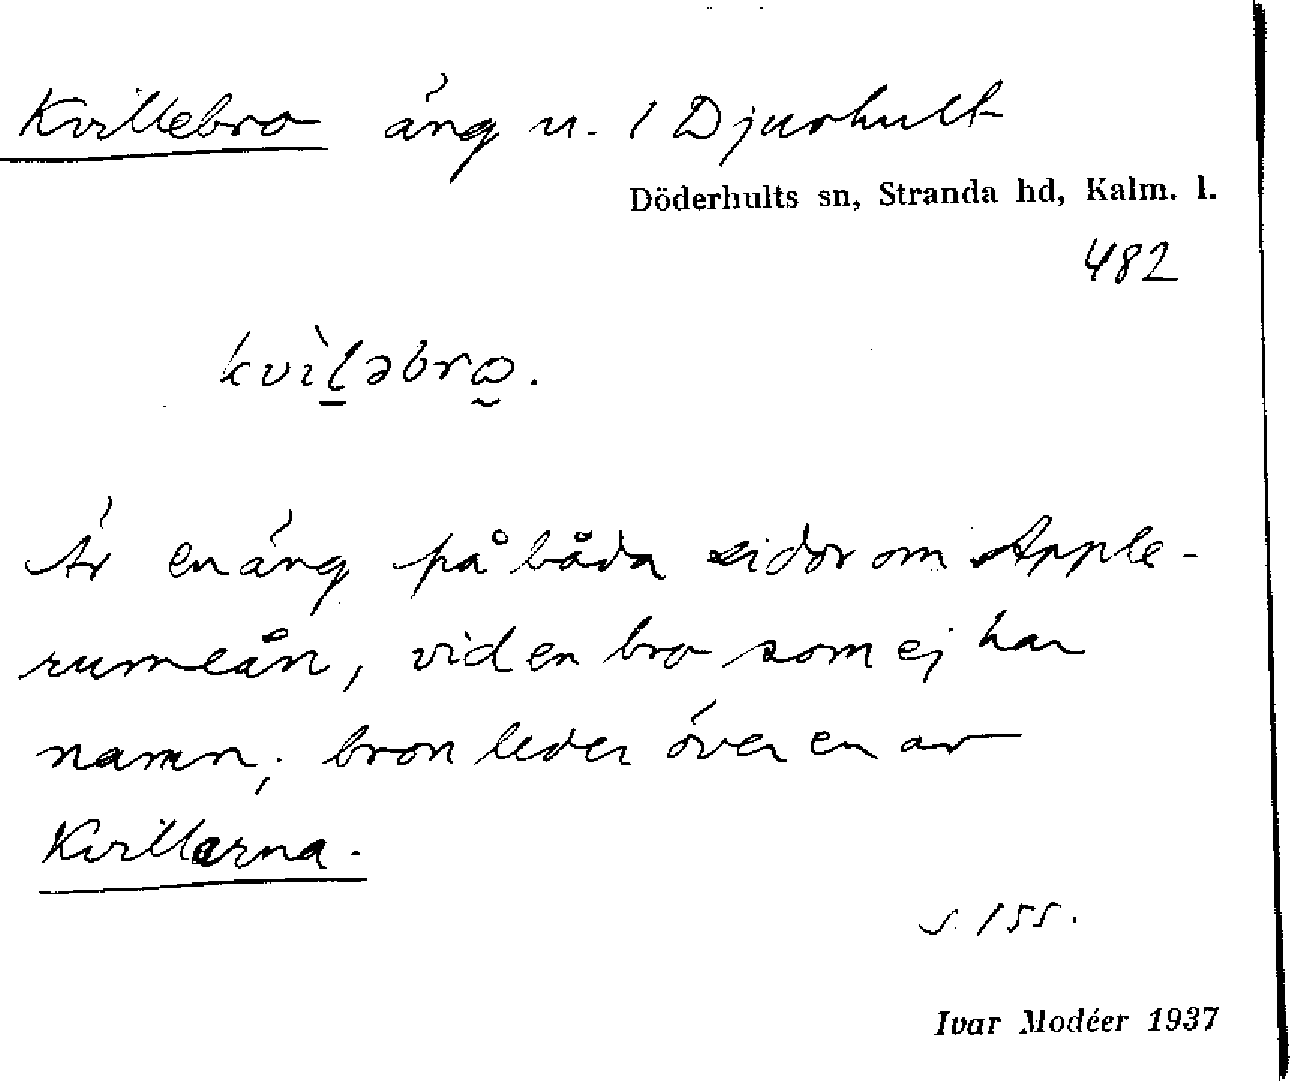 Kvillebro äng u. 1 Djurhult
Döderhults sn, Stranda hd, Kalm. l.
482
kvìl̠əbro̰.
Är en äng på båda sidor om Apple-
rumeån, vid en bro som ej har
namn; bron leder över en av
Kvillarna.
s. 155.
Ivar Modéer 1937